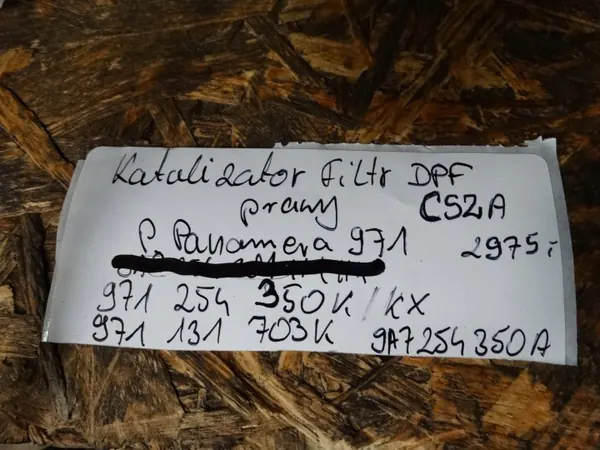 Katalizator Filtr DPF
prawy CSZA
P. Panamera 971 2975,-
971 254 350K / KX
971 131 703K 9A7254350A